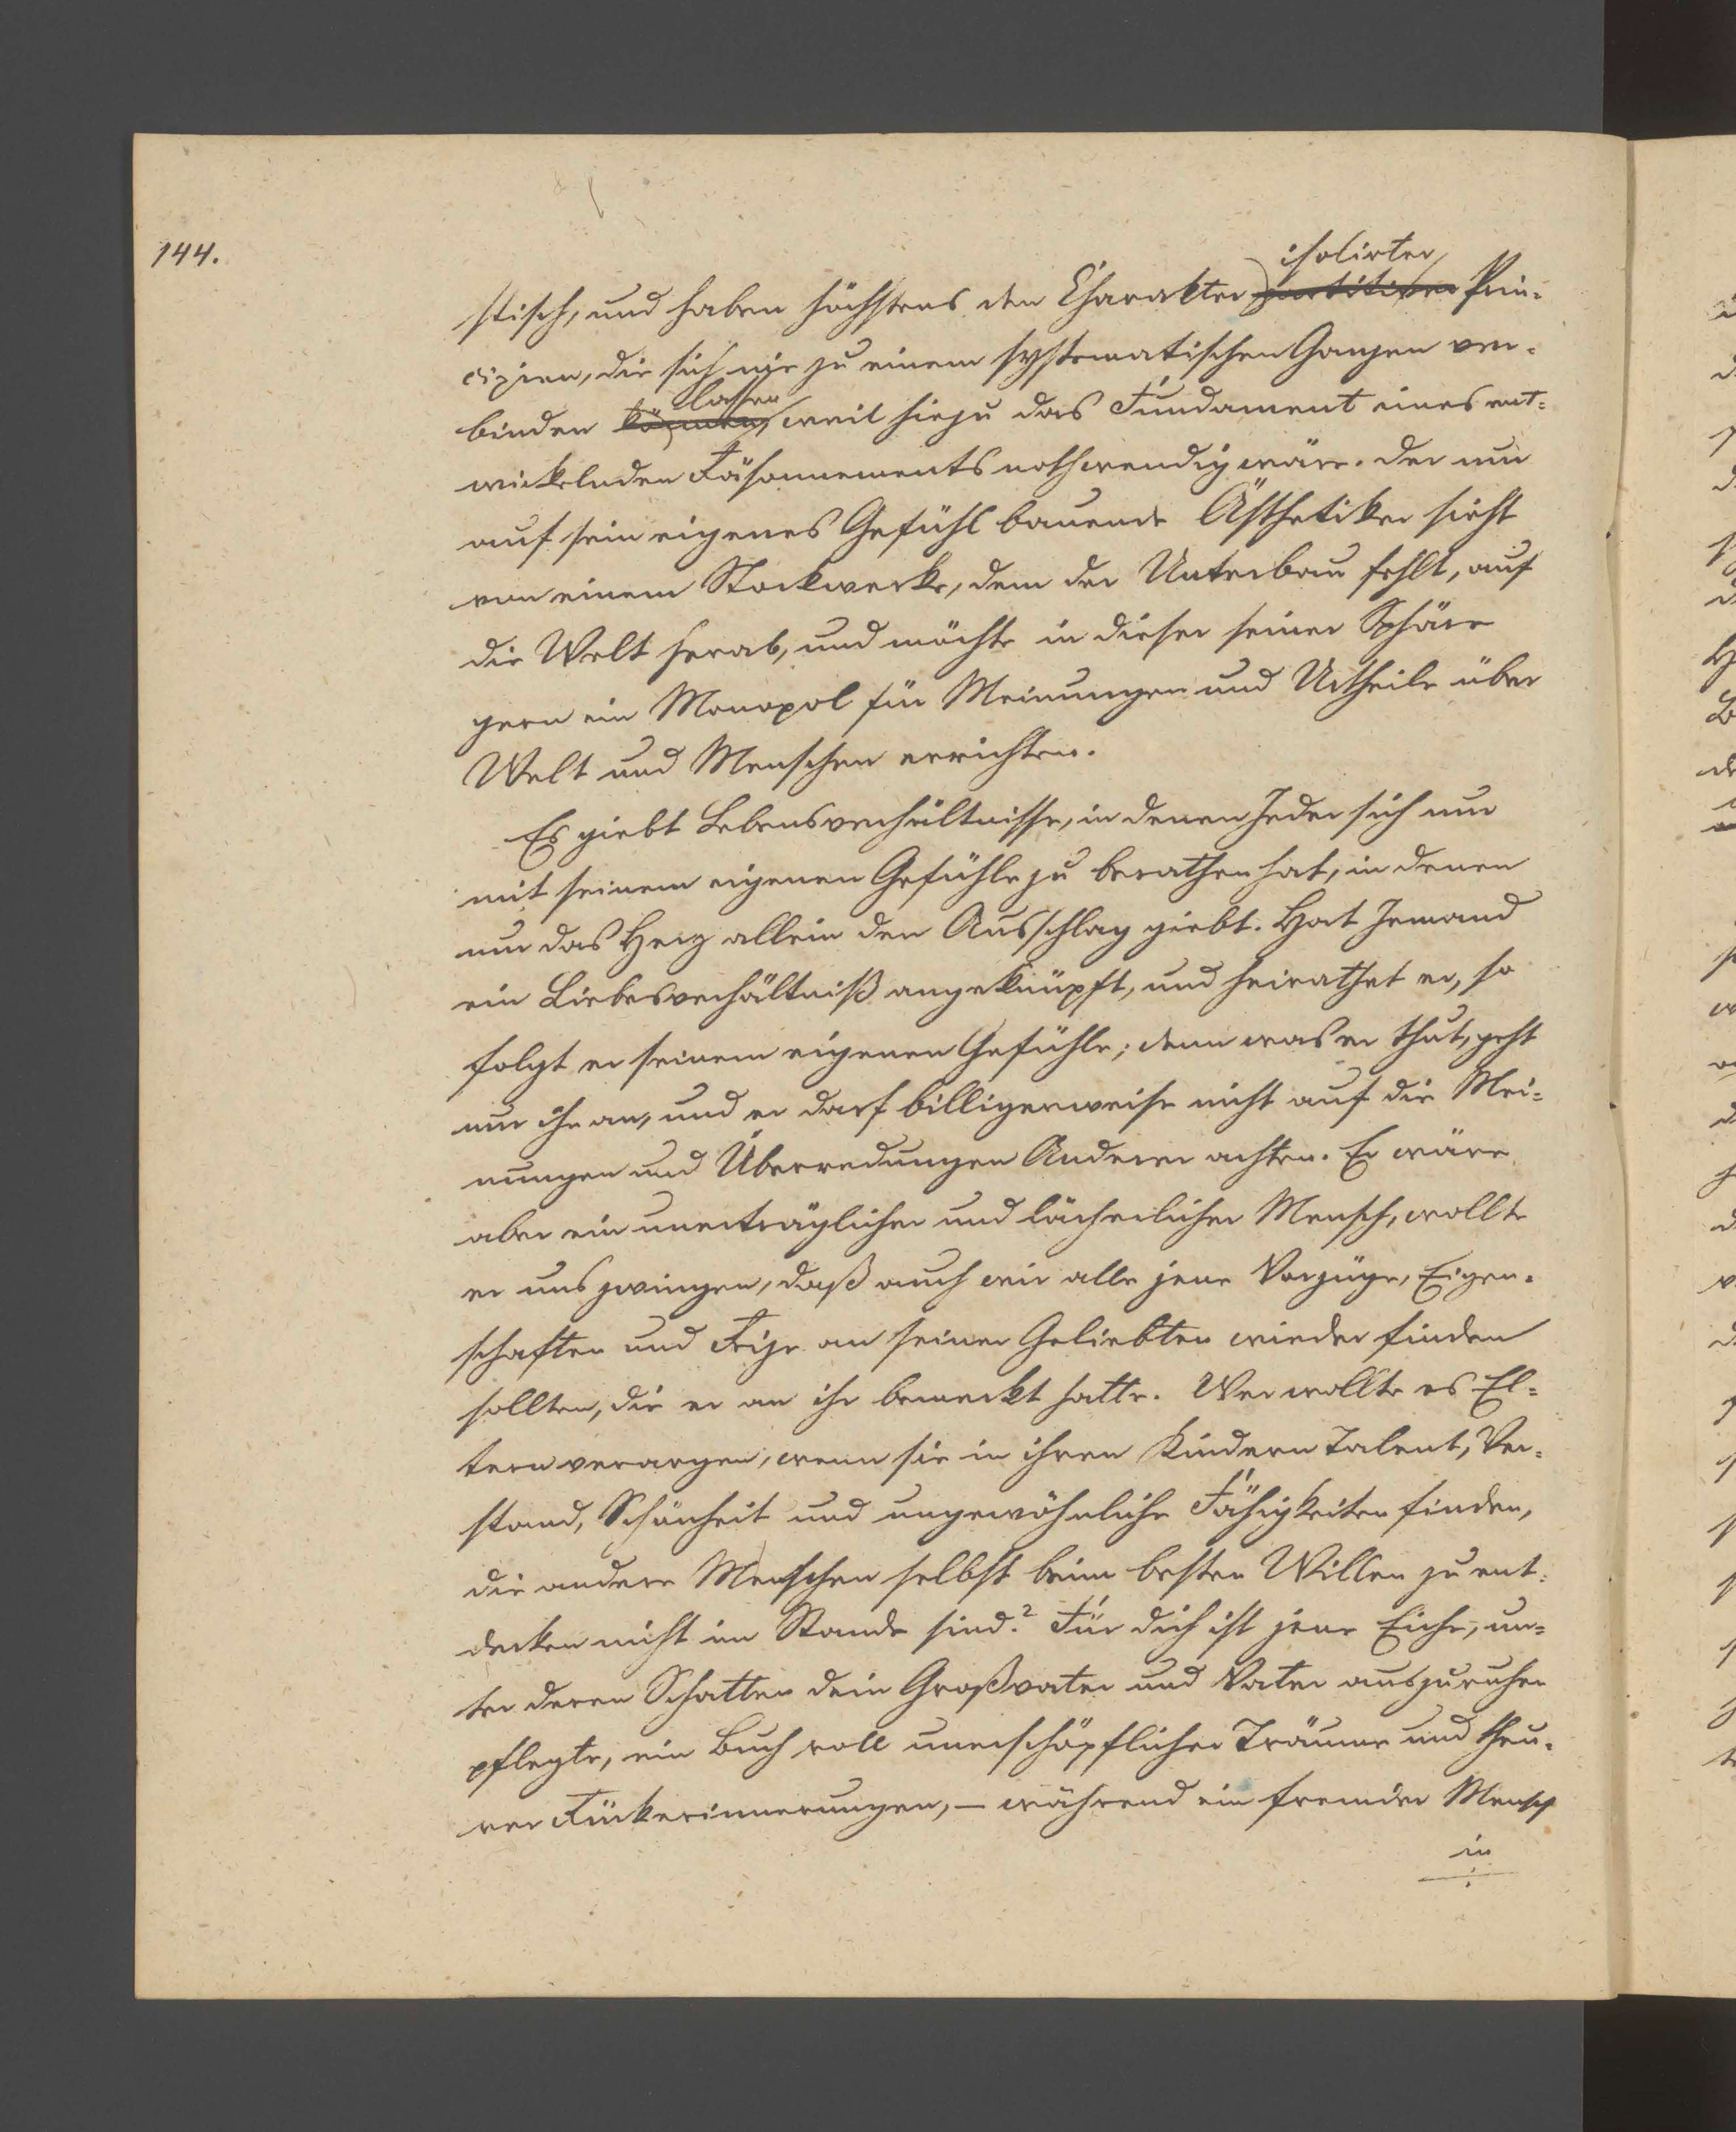 144.
isolirter
stisch, und haben höchstens den Charakter partitiver Prin-
cipien, die sich nie zu einem systematischen Ganzen ver-
lassen
binden können, weil hiezu das Fundament eines ent-
wickelnden Räsonnements nothwendig wäre. Der nur
auf sein eigenes Gefühl bauende Ästhetiker sieht
von einem Stockwerke, dem der Unterbau fehlt, auf
die Welt herab, und möchte in dieser seiner Sphäre
gern ein Monopol für Meinungen und Urtheile über
Welt und Menschen errichten.
Es giebt Lebensverhältnisse, in denen Jeder sich nur
mit seinem eigenen Gefühle zu berathen hat, in denen
nur das Herz allein den Ausschlag giebt. Hat Jemand
ein Liebesverhältniß angeknüpft, und heirathet er, so
folgt er seinem eigenen Gefühle; denn was er thut, geht
nur ihn an, und er darf billigerweise nicht auf die Mei-
nungen und Überredungen Anderer achten. Er wäre
aber ein unerträglicher und lächerlicher Mensch, wollte
er uns zwingen, daß auch wir alle jene Vorzüge, Eigen-
schaften und Reize an seiner Geliebten wieder finden
sollten, die er an ihr bemerkt hatte. Wer wollte es El-
tern verargen, wenn sie in ihren Kindern Talent, Ver-
stand, Schönheit und ungewöhnliche Fähigkeiten finden,
die andere Menschen selbst beim besten Willen zu ent-
decken nicht im Stande sind? Für dich ist jene Eiche, un-
ter deren Schatten dein Großvater und Vater auszuruhen
pflegte, ein Buch voll unerschöpflicher Träume und theu-
rer Rückerinnerungen, – während ein fremder Mensch
in